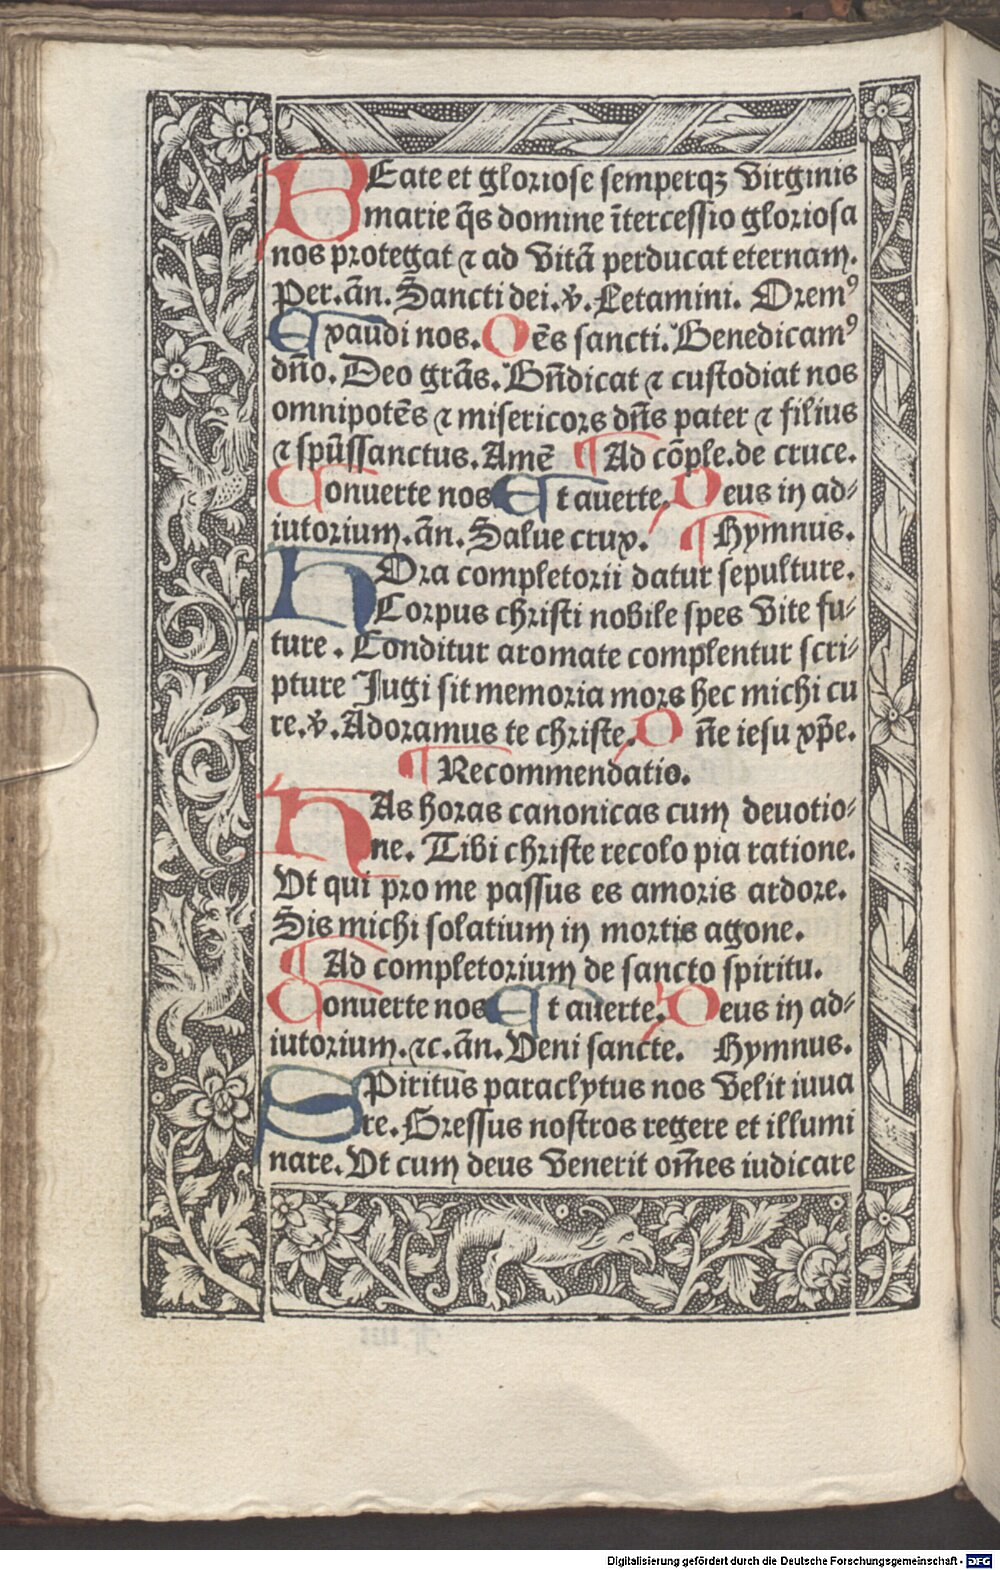 BEate et gloriose semperqꝫ Virginis
marie q̄s domine ītercessio gloriosa
nos protegat ⁊ ad Vitā perducat eternam.
Per. ān. Sancti dei. ℣. Letamini. Oremꝰ
Exaudi nos. Oēs sancti. Benedicamꝰ
dn̄o. Deo gr̄as. Bn̄dicat ⁊ custodiat nos
omnipotēs ⁊ misericors dn̄s pater ⁊ filius
⁊ spūssanctus. Amē ¶ Ad cōple. de cruce.
Conuerte nos Et auerte. Deus in ad⸗
iutorium. ān. Salue crux. ¶ Hymnus.
HOra completorii datur sepulture.
Corpus christi nobile spes Vite fu⸗
ture. Conditur aromate complentur scri⸗
pture Jugi sit memoria mors hec michi cu
re. ℣. Adoramus te christe. Dn̄e iesu xp̄e.
¶ Recommendatio.
HAs horas canonicas cum deuotio⸗
ne. Tibi christe recolo pia ratione.
Vt qui pro me passus es amoris ardore.
Sis michi solatium in mortis agone.
¶ Ad completorium de sancto spiritu.
Conuerte nos Et auerte. Deus in ad⸗
iutorium. ⁊c. ān. Veni sancte. Hymnus.
SPiritus paraclytus nos Velit iuua
re. Gressus nostros regere et illumi
nare. Vt cum deus Venerit om̄es iudicare
Digitalisierung gefördert durch die Deutsche Forschungsgemeinschaft - DFG